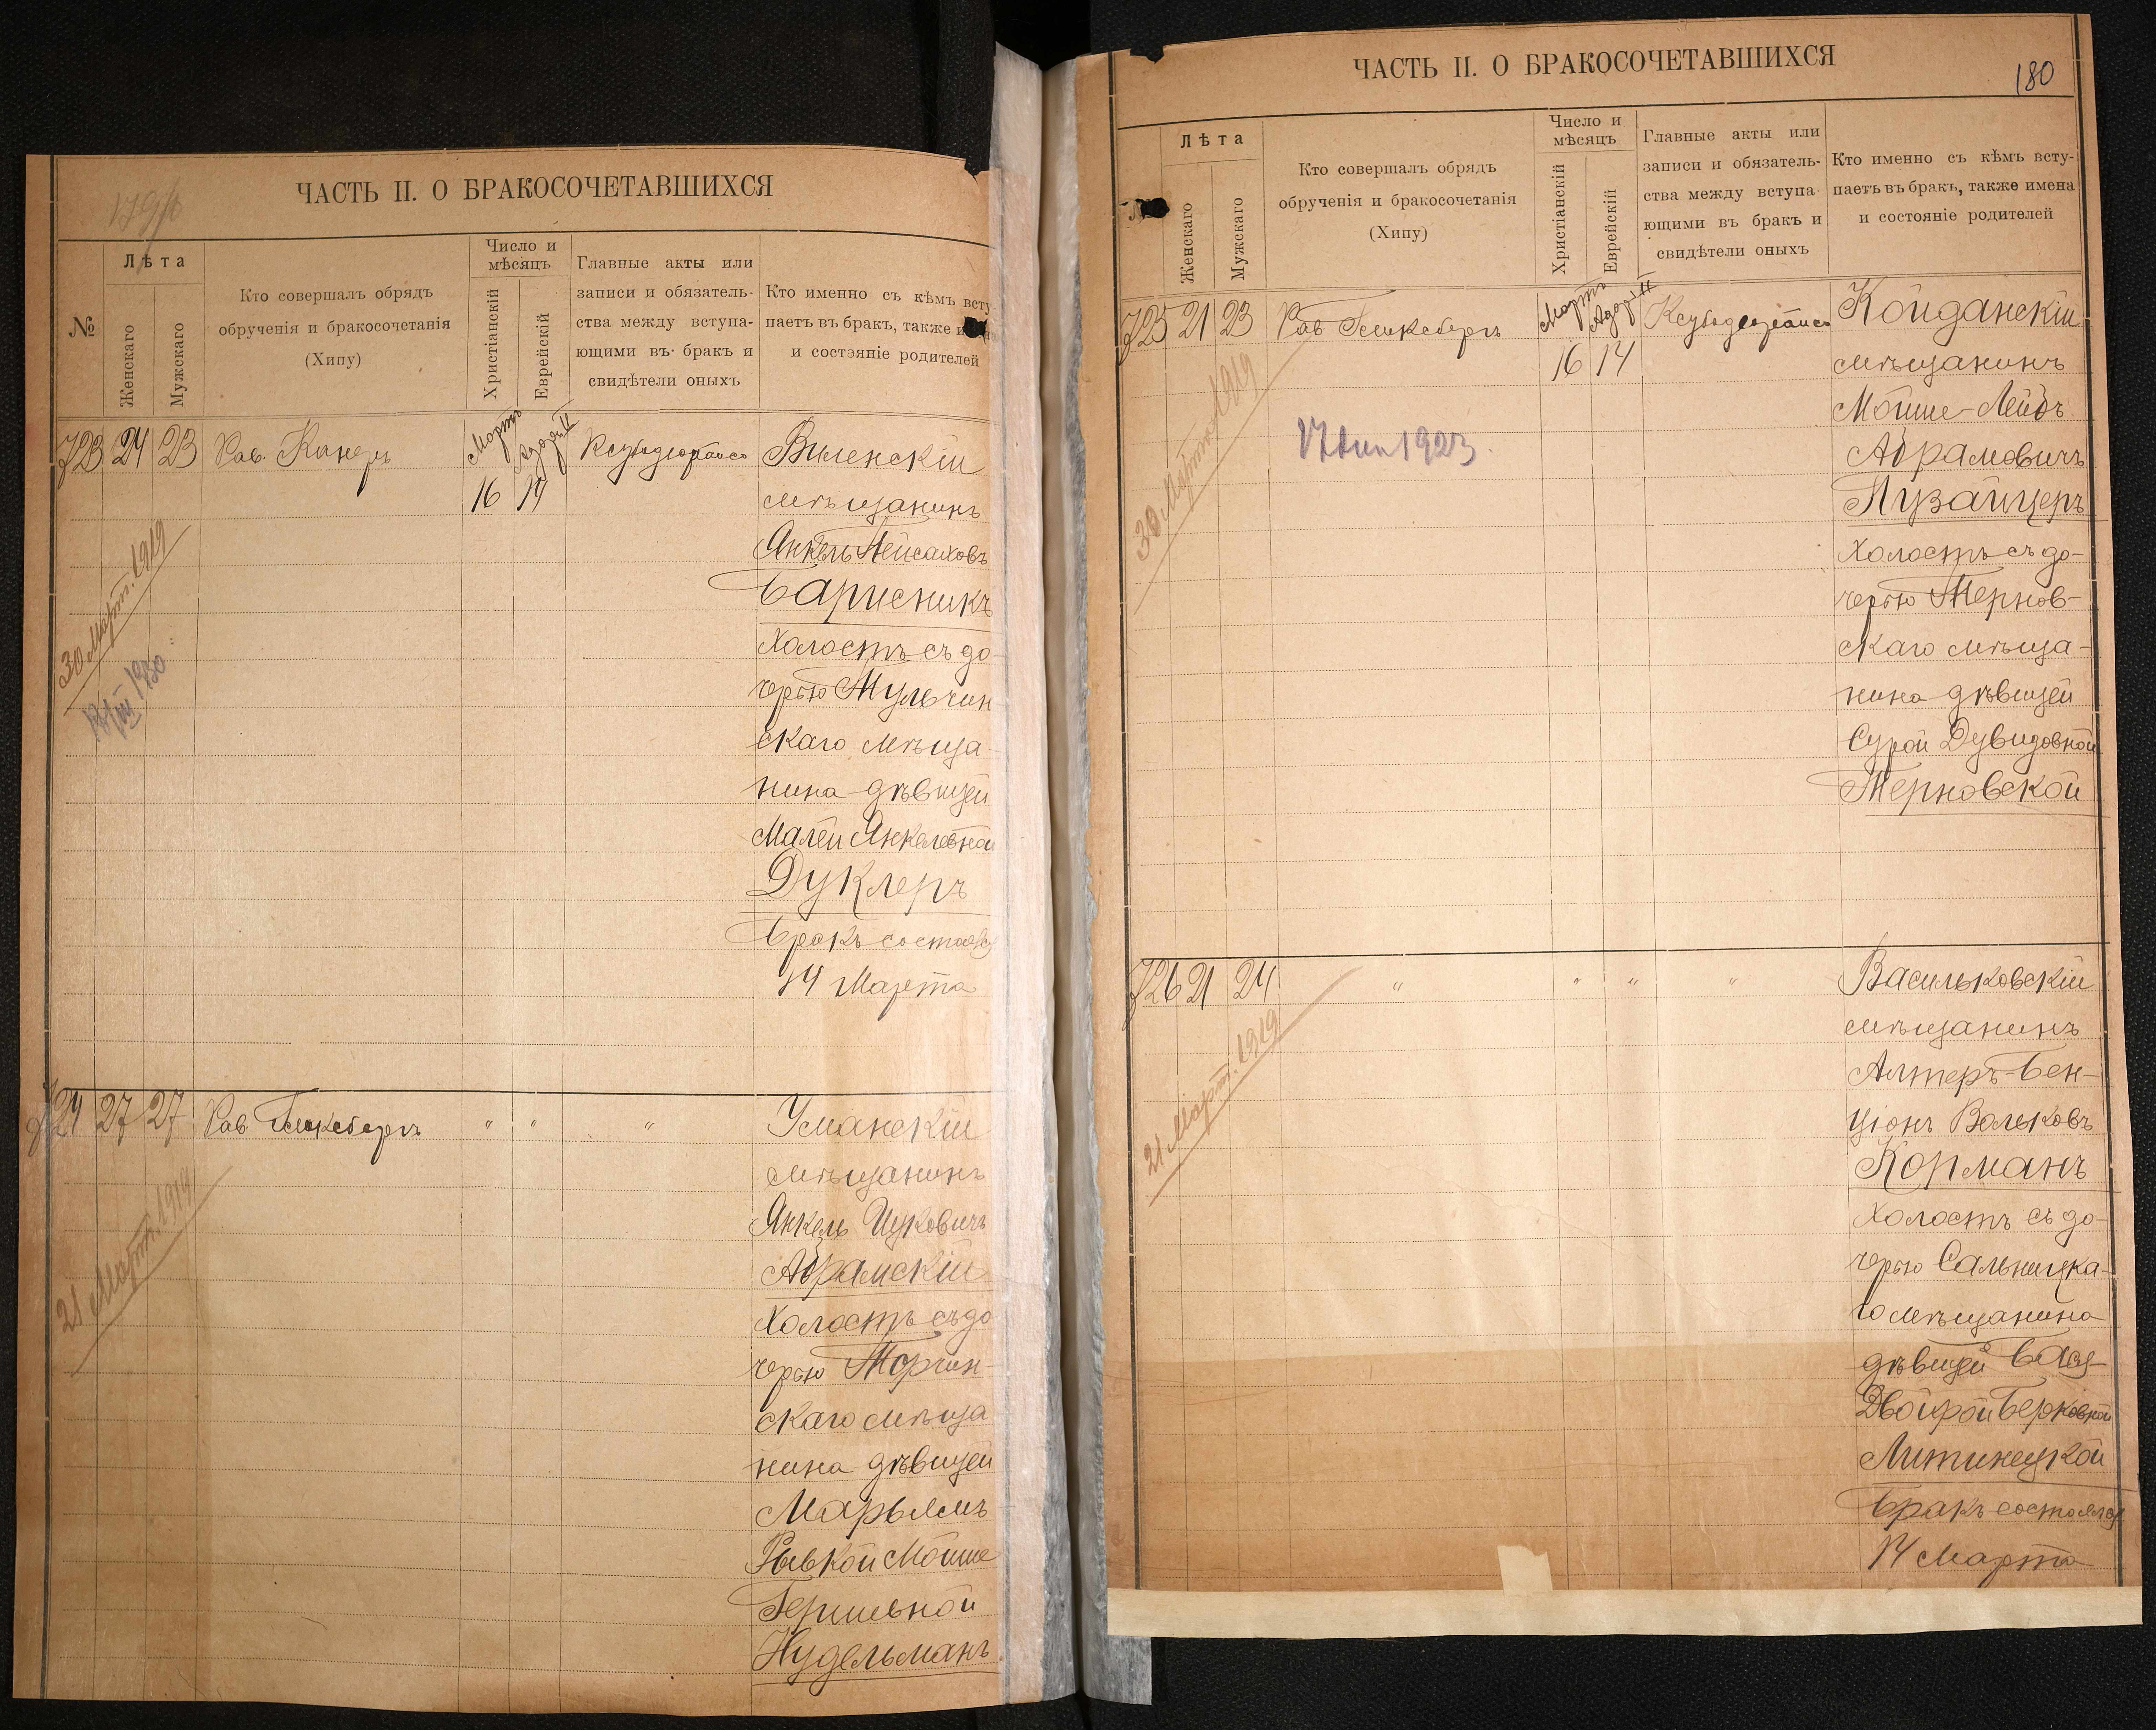 179/б
ЧАСТЬ II. О БРАКОСОЧЕТАВШИХСЯ
№
Лѣта
Женскаго
Мужскаго
Кто совершалъ обрядъ
обрученія и бракосочетанія
(Хипу)
Число и
мѣсяцъ
Христіанскій
Еврейскій
Главные акты или
записи и обязатель-
ства между вступа-
ющими въ бракъ и
свидѣтели оныхъ
Кто именно съ кѣмъ всту
паетъ въ бракъ, также и
и состояніе родителей
723 24 23 Рав. Канеръ Мартъ 16 Адаръ II 14
Виленскій
мѣщанинъ
Янкель Пейсаховъ
Барисникъ
холостъ съ до
черью Мульчин
скаго мѣща-
нина дѣвицей
Малей Янкелевной
Дуклеръ
Бракъ состоялся
14 Марта
30 Март. 1919
1930
724 27 27 Рав. " " "
Уманскій
мѣщанинъ
Янкель Ицковичъ
Абрамскій
холостъ съ до
черью Торчин-
скаго мѣща
нина дѣвицей
Марьямъ
Рывкой Мойше
Гершевной
Нудельманъ
21 Март. 1919
180
ЧАСТЬ II. О БРАКОСОЧЕТАВШИХСЯ
Лѣта
Женскаго
Мужскаго
Кто совершалъ обрядъ
обрученія и бракосочетанія
(Хипу)
Число и
мѣсяцъ
Христіанскій
Еврейскій
Главные акты или
записи и обязатель-
ства между вступа-
ющими въ бракъ и
свидѣтели оныхъ
Кто именно съ кѣмъ всту-
паетъ въ бракъ, также имена
и состояніе родителей
725 21 23 Рав. Мартъ 16 Адаръ II 14
Койданскій
мѣщанинъ
Мойше-Лейбъ
Абрамовичъ
Пузайцеръ
холостъ съ до-
черью Тернов-
скаго мѣща-
нина дѣвицей
Сурой Дувидовной
Терновской
30 Март. 1919
1923.
726 21 24 " " " "
Васильковскій
мѣщанинъ
Алтеръ-Бен-
ціонъ Вольковъ
Корманъ
холостъ съ до-
черью Сальницка-
го мѣщанина
дѣвицей Бася-
Двойрой Берковной
Литинецкой
Бракъ состоялся
14 Марта
21 Март. 1919